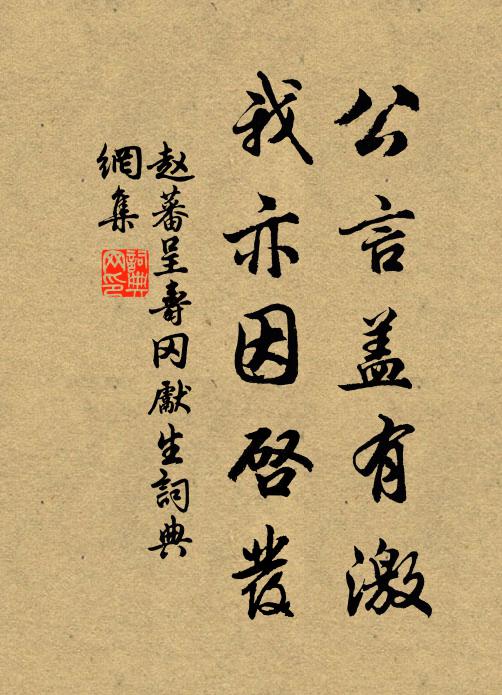 公言盖有激
我亦因啓發
赵蕃呈壽冈獻生詞典
網集
詞典
网印